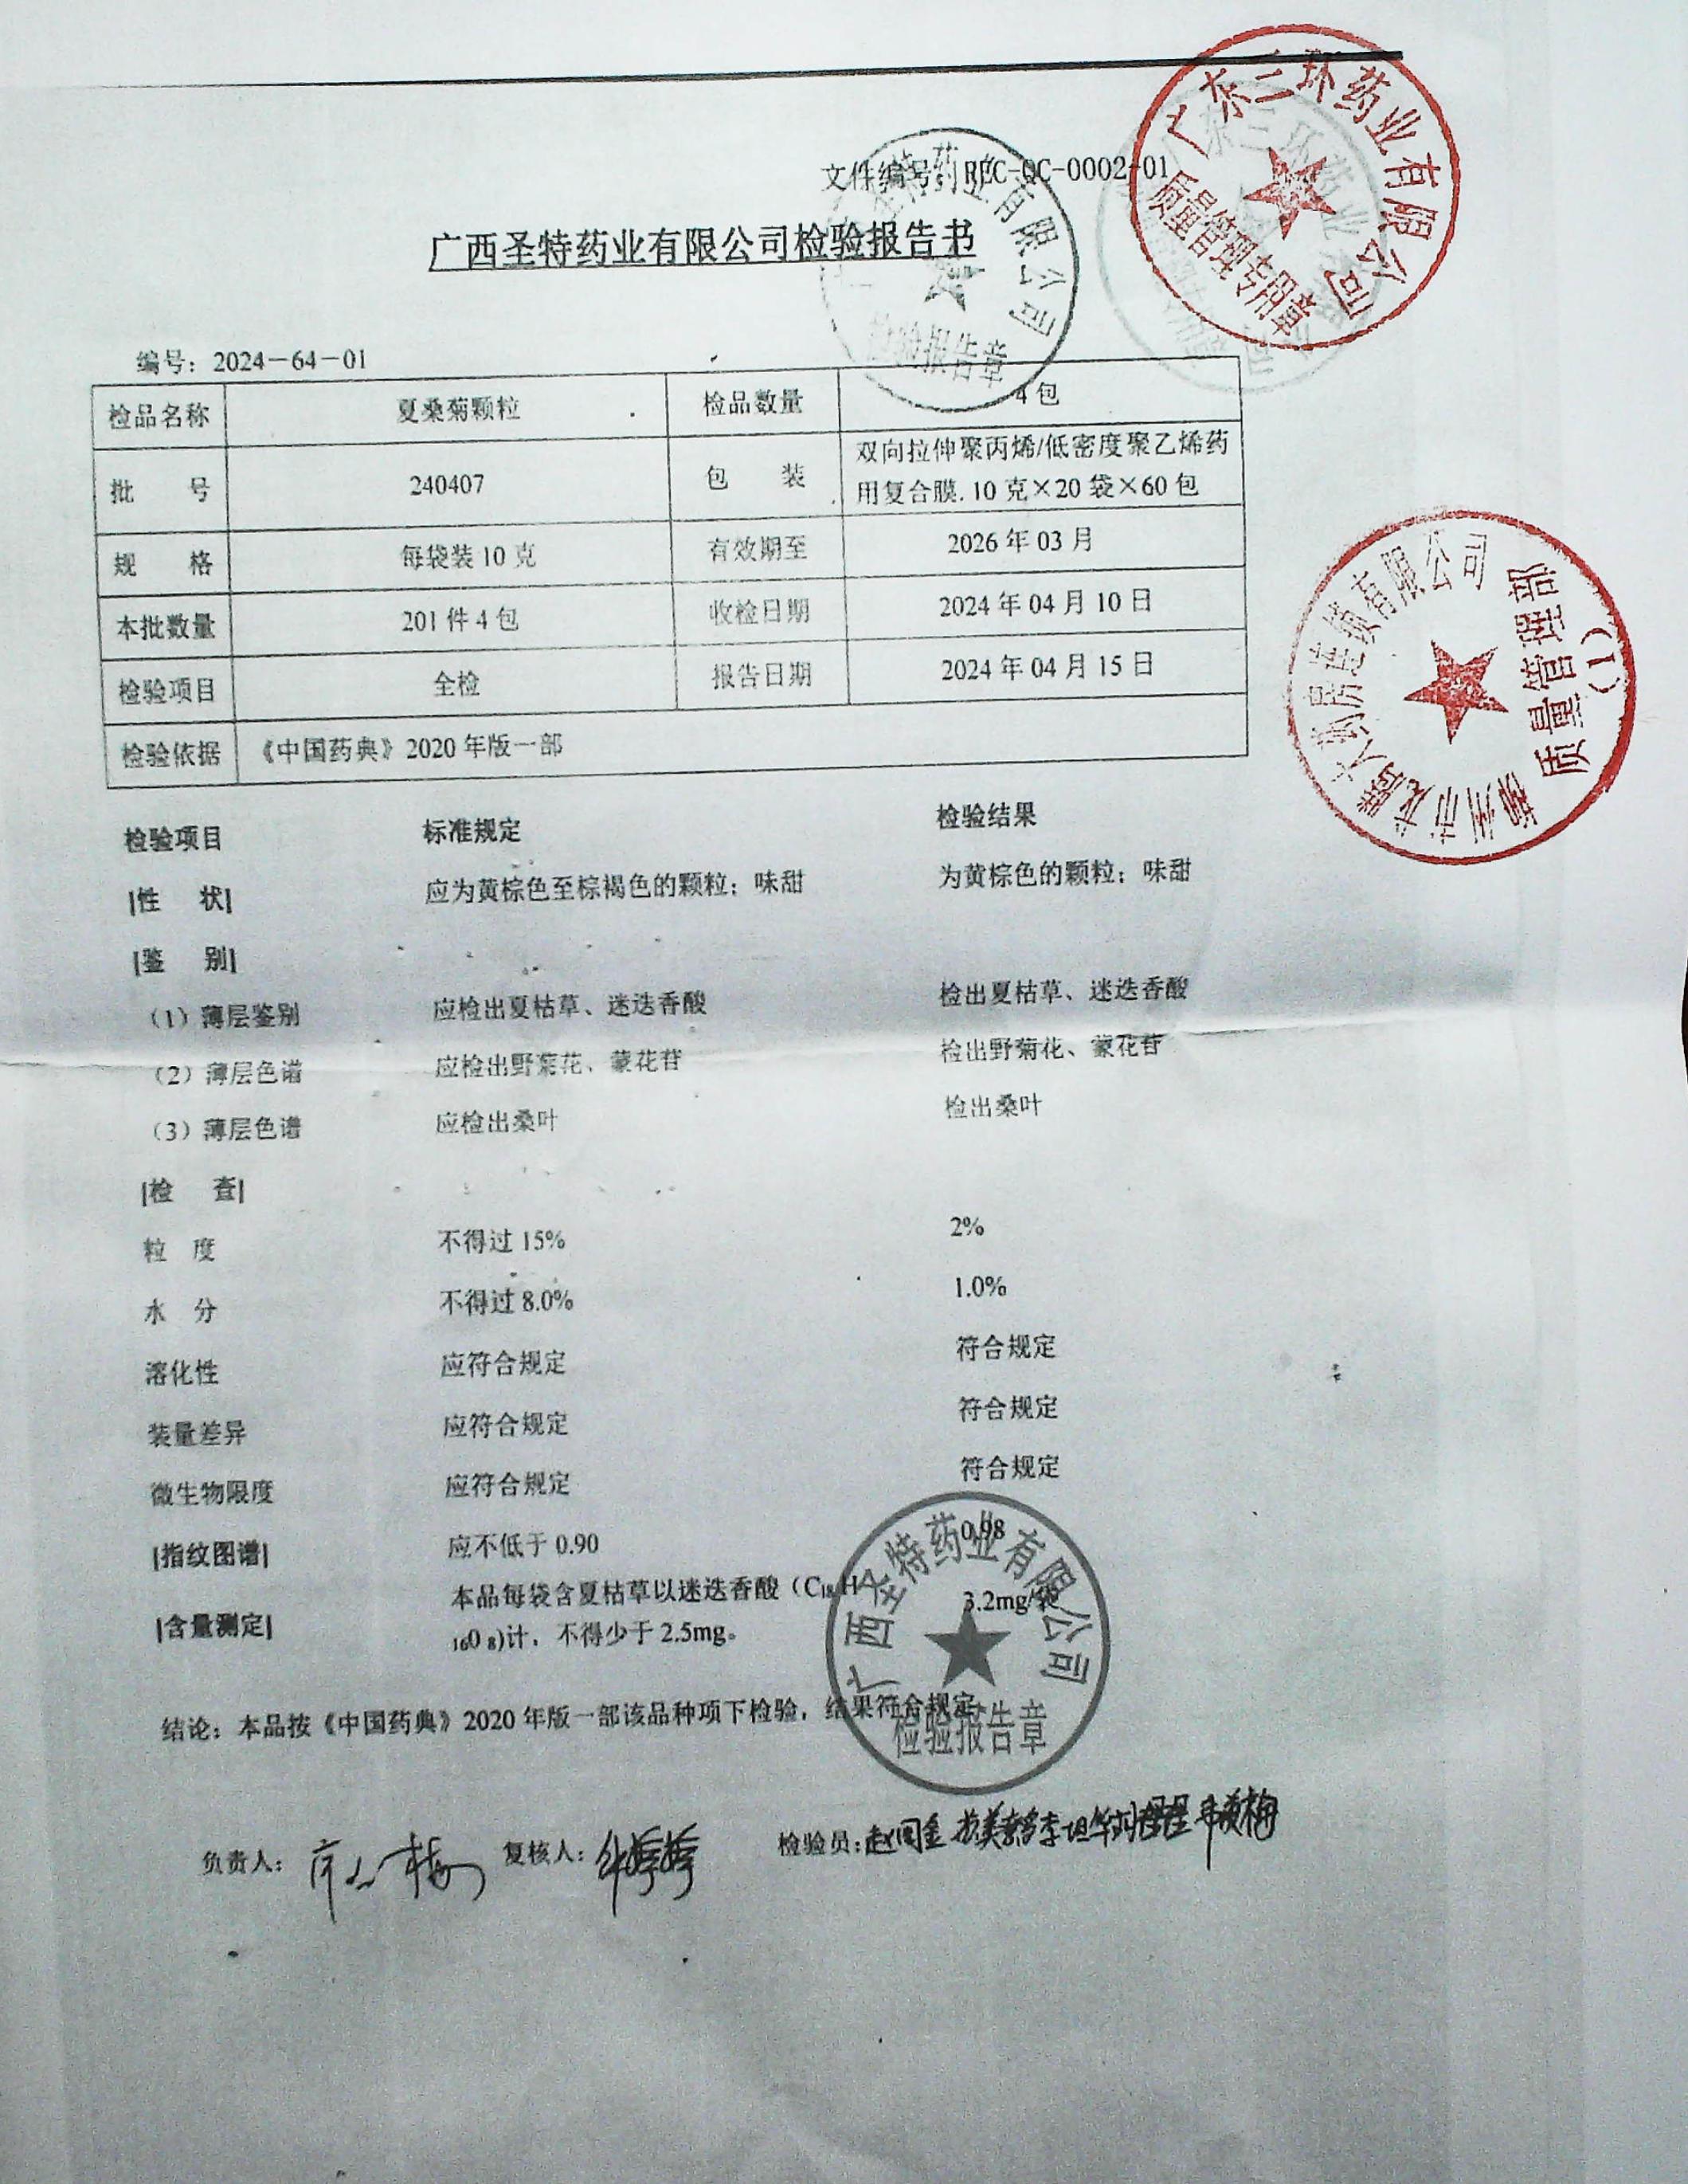 文件编号: REC-QC-0002-01
广西圣特药业有限公司检验报告书
编号: 2024-64-01
检品名称 夏桑菊颗粒 检品数量 4包
批 号 240407 包 装 双向拉伸聚丙烯/低密度聚乙烯药
用复合膜. 10克×20袋×60包
规 格 每袋装10克 有效期至 2026年03月
本批数量 201件4包 收检日期 2024年04月10日
检验项目 全检 报告日期 2024年04月15日
检验依据 《中国药典》2020年版一部
检验项目 标准规定 检验结果
|性 状| 应为黄棕色至棕褐色的颗粒; 味甜 为黄棕色的颗粒; 味甜
|鉴 别|
(1) 薄层鉴别 应检出夏枯草、迷迭香酸 检出夏枯草、迷迭香酸
(2) 薄层色谱 应检出野菊花、蒙花苷 检出野菊花、蒙花苷
(3) 薄层色谱 应检出桑叶 检出桑叶
|检 查|
粒 度 不得过15% 2%
水 分 不得过8.0% 1.0%
溶化性 应符合规定 符合规定
装量差异 应符合规定 符合规定
微生物限度 应符合规定 符合规定
|指纹图谱| 应不低于0.90 0.98
|含量测定| 本品每袋含夏枯草以迷迭香酸 (C₁₈H 3.2mg/袋
₁₆O ₈)计, 不得少于2.5mg。
结论: 本品按《中国药典》2020年版一部该品种项下检验, 结果符合规定
负责人: 复核人: 检验员:
广东三环药业有限公司
质量管理专用章
药业有限公司
检验报告章
有限公司
质量管理部
(1)
广西圣特药业有限公司
检验报告章